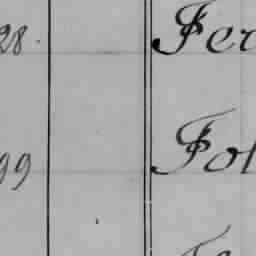 28. Fer
99 Fol